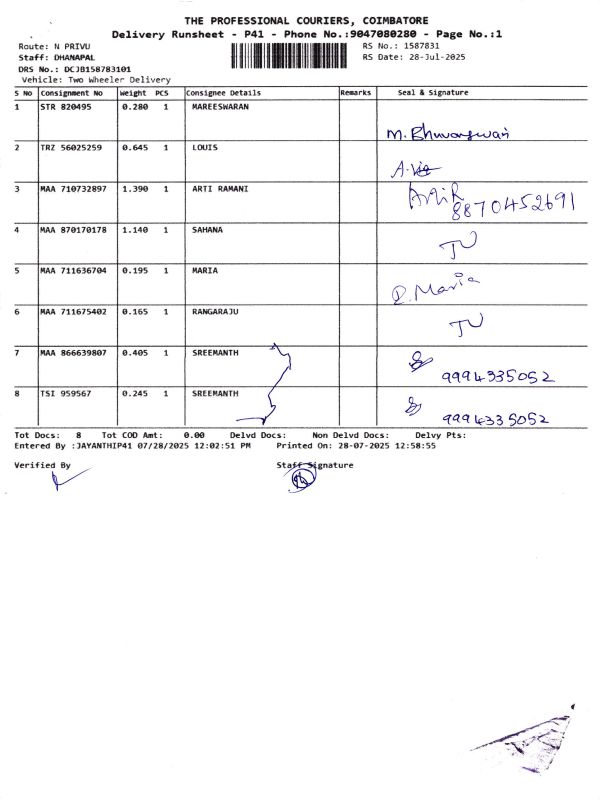 THE PROFESSIONAL COURIERS, COIMBATORE
Delivery Runsheet - P41 - Phone No.:9047080280 - Page No.:1
Route: N PRIVU RS No.: 1587831
Staff: DHANAPAL RS Date: 28-Jul-2025
DRS No.: DCJB158783101
Vehicle: Two Wheeler Delivery
S No Consignment No Weight PCS Consignee Details Remarks Seal & Signature
1 STR 820495 0.280 1 MAREESWARAN
M.
2 TRZ 56025259 0.645 1 LOUIS
A.
3 MAA 710732897 1.390 1 ARTI RAMANI
8870452691
4 MAA 870170178 1.140 1 SAHANA
5 MAA 711636704 0.195 1 MARIA
Maria
6 MAA 711675402 0.165 1 RANGARAJU
7 MAA 866639807 0.405 1 SREEMANTH
9994335052
8 TSI 959567 0.245 1 SREEMANTH
9994335052
Tot Docs: 8 Tot COD Amt: 0.00 Delvd Docs: Non Delvd Docs: Delvy Pts:
Entered By :JAYANTHIP41 07/28/2025 12:02:51 PM Printed On: 28-07-2025 12:58:55
Verified By Staff Signature